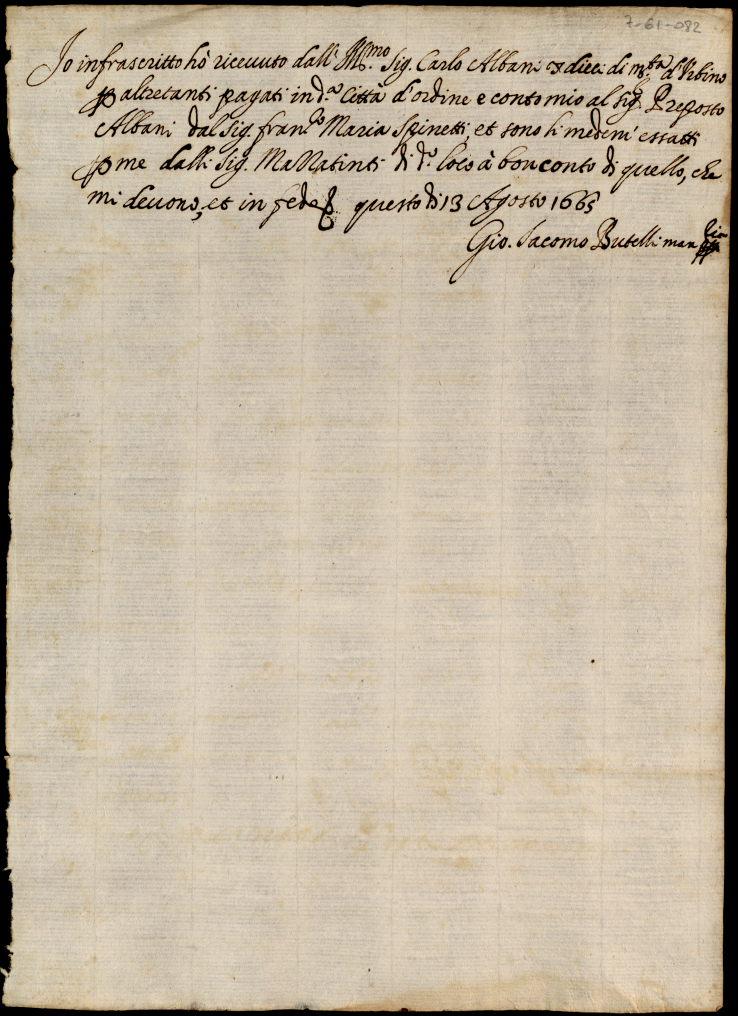 7-61-082
Io infrascritto hò riceuuto dall' Ill.mo Sig. Carlo Albani ∇ dieci di m.ta d'Vrbino
p altretanti pagati in d.a Città d'ordine e conto mio al Sig.r Preposto
Albani dal Sig. fran.co Maria Spinetti, et sono li medemi essatti
p me dalli Sig. Mattatinti di d.o loco à bon conto di quello, che
mi deuono, et in fede questo dì 13 Agosto 1665
Gio. Iacomo Butelli man pp.a